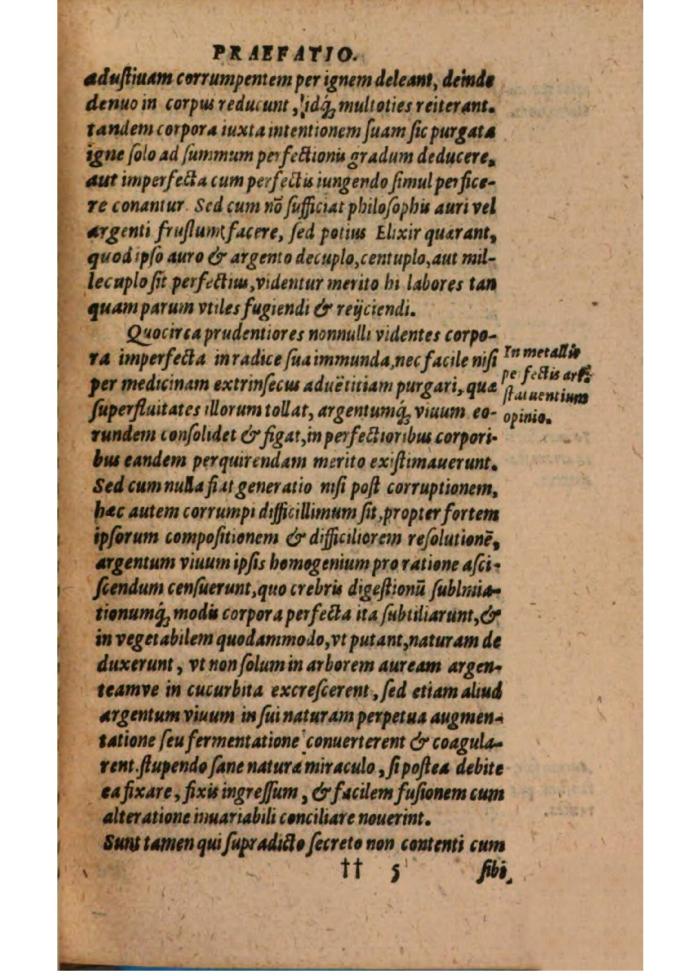 PRAEFATIO.
adustiuam corrumpentem per ignem deleant, deinde
denuo in corpus reducunt, idq́; multoties reiterant.
tandem corpora iuxta intentionem suam sic purgata
igne solo ad summum perfectionis gradum deducere,
aut imperfecta cum perfectis iungendo simul perfice-
re conantur. Sed cum nõ sufficiat philosophis auri vel
argenti frustum facere, sed potius Elixir quærant,
quod ipso auro & argento decuplo, centuplo, aut mil-
lecuplo sit perfectius, videntur merito hi labores tan
quam parum vtiles fugiendi & reijciendi.
Quocirca prudentiores nonnulli videntes corpo-
ra imperfecta in radice sua immunda, nec facile nisi
per medicinam extrinsecus aduẽtitiam purgari, quæ
superfluitates illorum tollat, argentumq́; viuum eo-
rundem consolidet & figat, in perfectioribus corpori-
bus eandem perquirendam merito existimauerunt.
Sed cum nulla fiat generatio nisi post corruptionem,
hæc autem corrumpi difficillimum sit, propter fortem
ipsorum compositionem & difficiliorem resolutionẽ,
argentum viuum ipsis homogenium pro ratione asci-
scendum censuerunt, quo crebris digestionũ sublmia-
tionumq́; modis corpora perfecta ita subtiliarunt, &
in vegetabilem quodammodo, vt putant, naturam de
duxerunt, vt non solum in arborem auream argen-
teamve in cucurbita excrescerent, sed etiam aliud
argentum viuum in sui naturam perpetua augmen-
tatione seu fermentatione conuerterent & coagula-
rent. stupendo sane naturæ miraculo, si postea debite
ea fixare, fixis ingressum, & facilem fusionem cum
alteratione inuariabili conciliare nouerint.
Sunt tamen qui supradicto secreto non contenti cum
†† 5 sibi
In metallis
perfectis arti-
sta uentium
opinio.